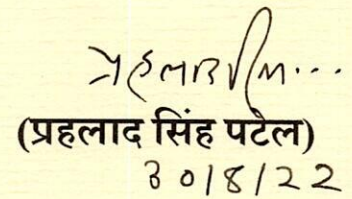 (प्रहलाद सिंह पटेल)
30/8/22